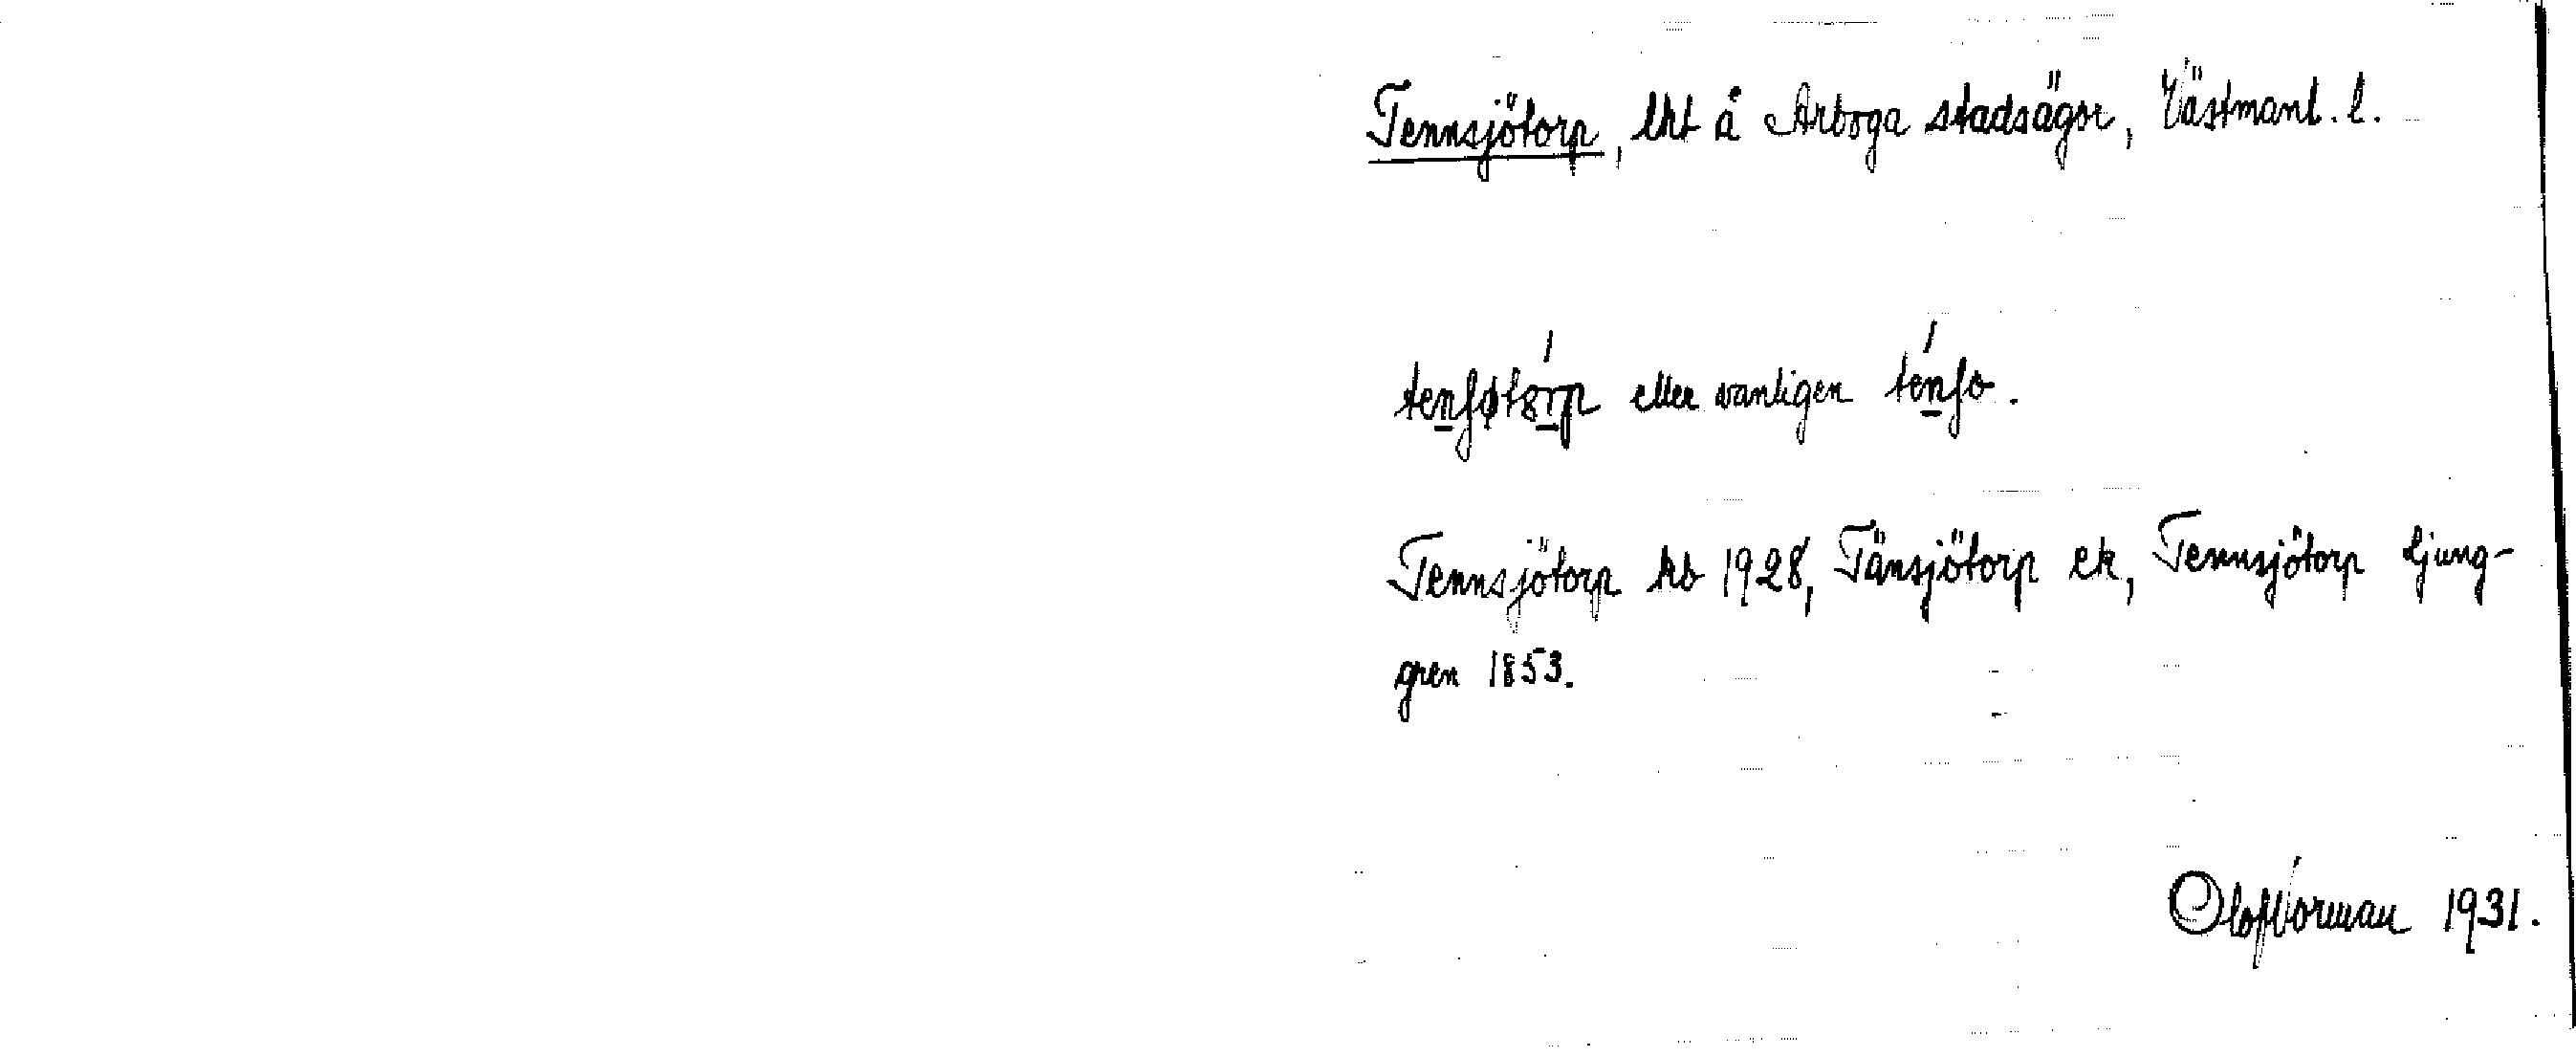 Tennsjötorp, lht å Arboga stadsägor, Västmanl. l.
tenʃøtórp eller vanligen ténʃo.
Tennsjötorp kb 1928, Tänsjötorp ek, Tennsjötorp Ljung-
gren 1853.
Olof Norman 1931.